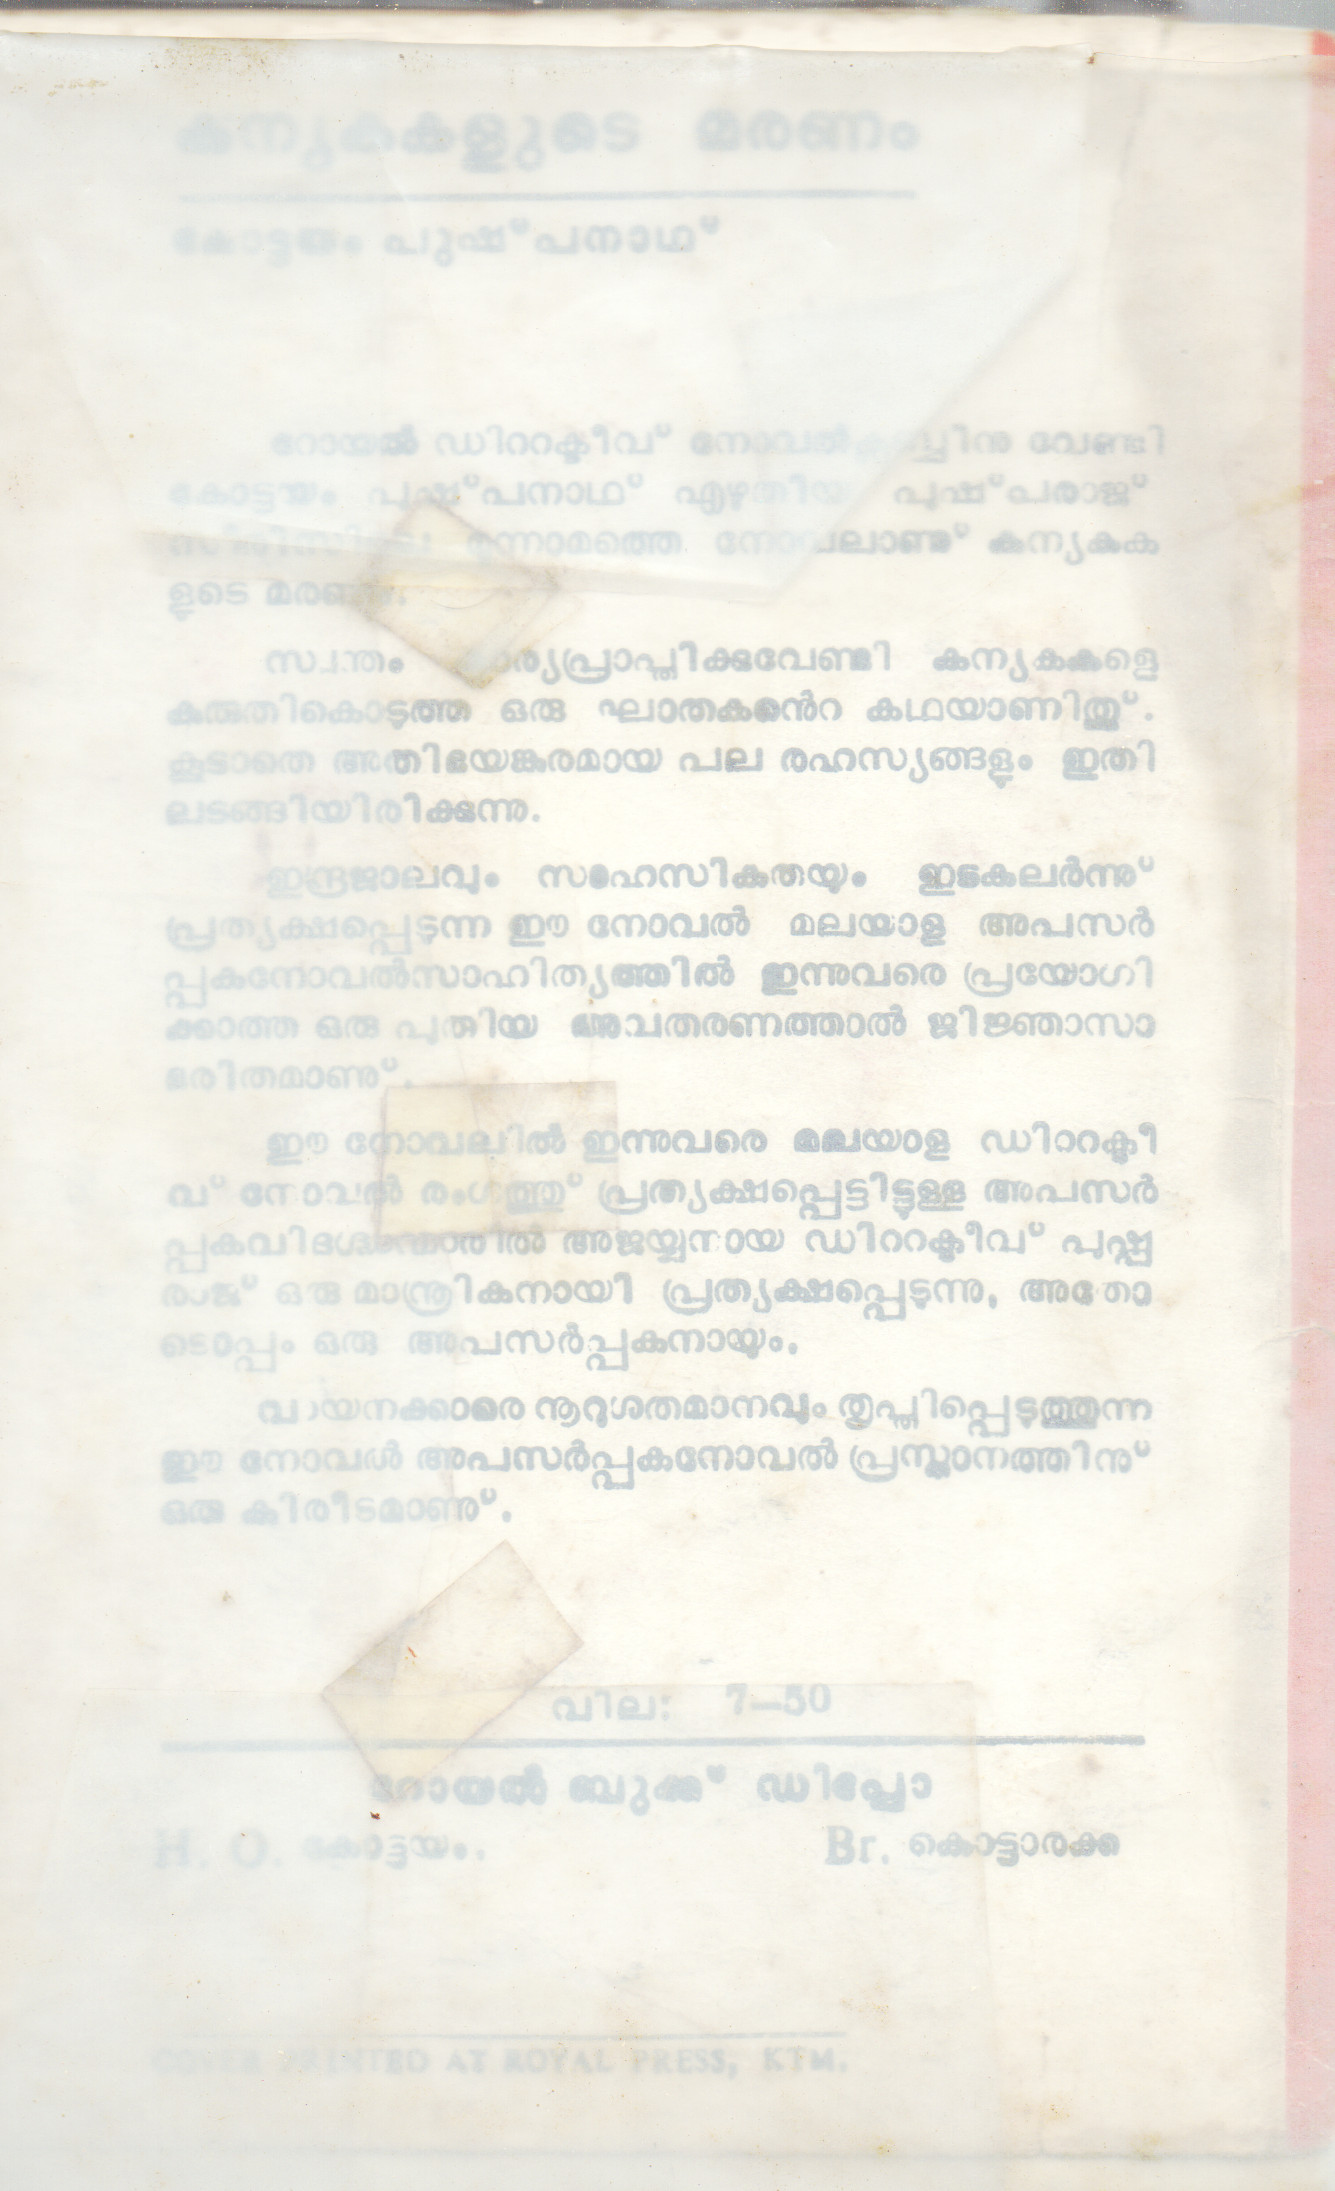 കന്യകകളുടെ മരണം
കോട്ടയം പുഷ്പനാഥ്
റോയൽ ഡിററക്ടീവ് നോവൽക്ലബ്ബിനു വേണ്ടി
കോട്ടയം പുഷ്പനാഥ് എഴുതിയ പുഷ്പരാജ്
നോവലാണു് കന്യകക
ളുടെ മരണം.
സ്വന്തം കാര്യപ്രാപ്തിക്കുവേണ്ടി കന്യകകളെ
കുരുതികൊടുത്ത ഒരു ഘാതകന്റെ കഥയാണിതു്.
കൂടാതെ അതിഭയങ്കരമായ പല രഹസ്യങ്ങളും ഇതി
ലടങ്ങിയിരിക്കുന്നു.
ഇന്ദ്രജാലവും സാഹസികതയും ഇടകലർന്നു്
പ്രത്യക്ഷപ്പെടുന്ന ഈ നോവൽ മലയാള അപസർ
പ്പകനോവൽസാഹിത്യത്തിൽ ഇന്നുവരെ പ്രയോഗി
ക്കാത്ത ഒരു പുതിയ അവതരണത്താൽ ജിജ്ഞാസാ
ഭരിതമാണു്.
ഈ നോവലിൽ ഇന്നുവരെ മലയാള ഡിററക്ടീ
വ് നോവൽ രംഗത്തു് പ്രത്യക്ഷപ്പെട്ടിട്ടുള്ള അപസർ
പ്പകവിദഗ്ദ്ധന്മാരിൽ അജയ്യനായ ഡിററക്ടീവ് പുഷ്പ
രാജ് ഒരു മാന്ത്രികനായി പ്രത്യക്ഷപ്പെടുന്നു, അതോ
ടൊപ്പം ഒരു അപസർപ്പകനായും.
വായനക്കാരെ നൂറുശതമാനവും തൃപ്തിപ്പെടുത്തുന്ന
ഈ നോവൽ അപസർപ്പകനോവൽ പ്രസ്ഥാനത്തിനു്
ഒരു കിരീടമാണു്.
വില: 7—50
റോയൽ ബുക്ക് ഡിപ്പോ
H. O. കോട്ടയം.
Br. കൊട്ടാരക്കര
COVER PRINTED AT ROYAL PRESS, KTM.